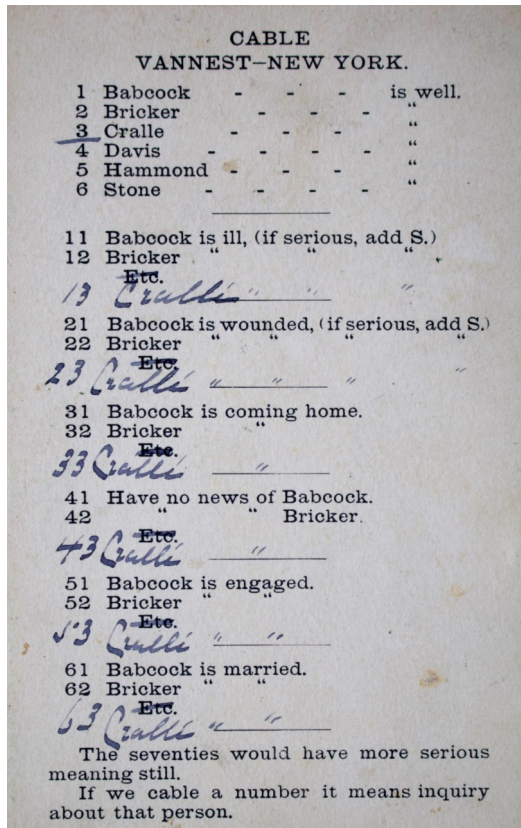 CABLE
VANNEST—NEW YORK.
1 Babcock - - - is well.
2 Bricker - - - “
3 Cralle - - - “
4 Davis - - - - “
5 Hammond - - - “
6 Stone - - - - “
11 Babcock is ill, (if serious, add S.)
12 Bricker “ “ “
Etc.
13 Cralle “ “ “
21 Babcock is wounded, (if serious, add S.)
22 Bricker “ “ “ “
Etc.
23 Cralle “ “ “ “
31 Babcock is coming home.
32 Bricker “
Etc.
33 Cralle “
41 Have no news of Babcock.
42 “ “ Bricker.
Etc.
43 Cralle “
51 Babcock is engaged.
52 Bricker “ “
Etc.
53 Cralle “ “
61 Babcock is married.
62 Bricker “ “
Etc.
63 Cralle “ “
The seventies would have more serious
meaning still.
If we cable a number it means inquiry
about that person.